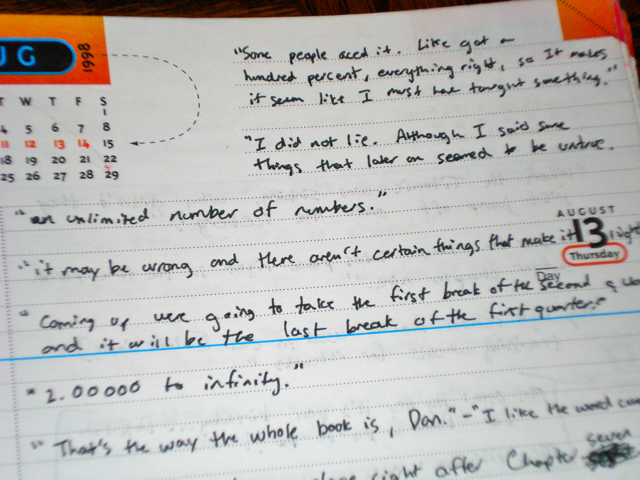 UG
1998
T W T F S
1
4 5 6 7 8
11 12 13 14 15
18 19 20 21 22
25 26 27 28 29
"Some people aced it. Like got a
hundred percent, everything right, so It makes
it seem like I must have taught something."
"I did not lie. Although I said some
things that later on seemed to be untrue.
"an unlimited number of numbers."
AUGUST
13
Thursday
"it may be wrong and there aren't certain things that make it
Day
"Coming up we're going to take the first break of the second
and it will be the last break of the first quarter."
"2.00000 to infinity."
"That's the way the whole book is, Dan." - "I like the word
right after Chapter seven